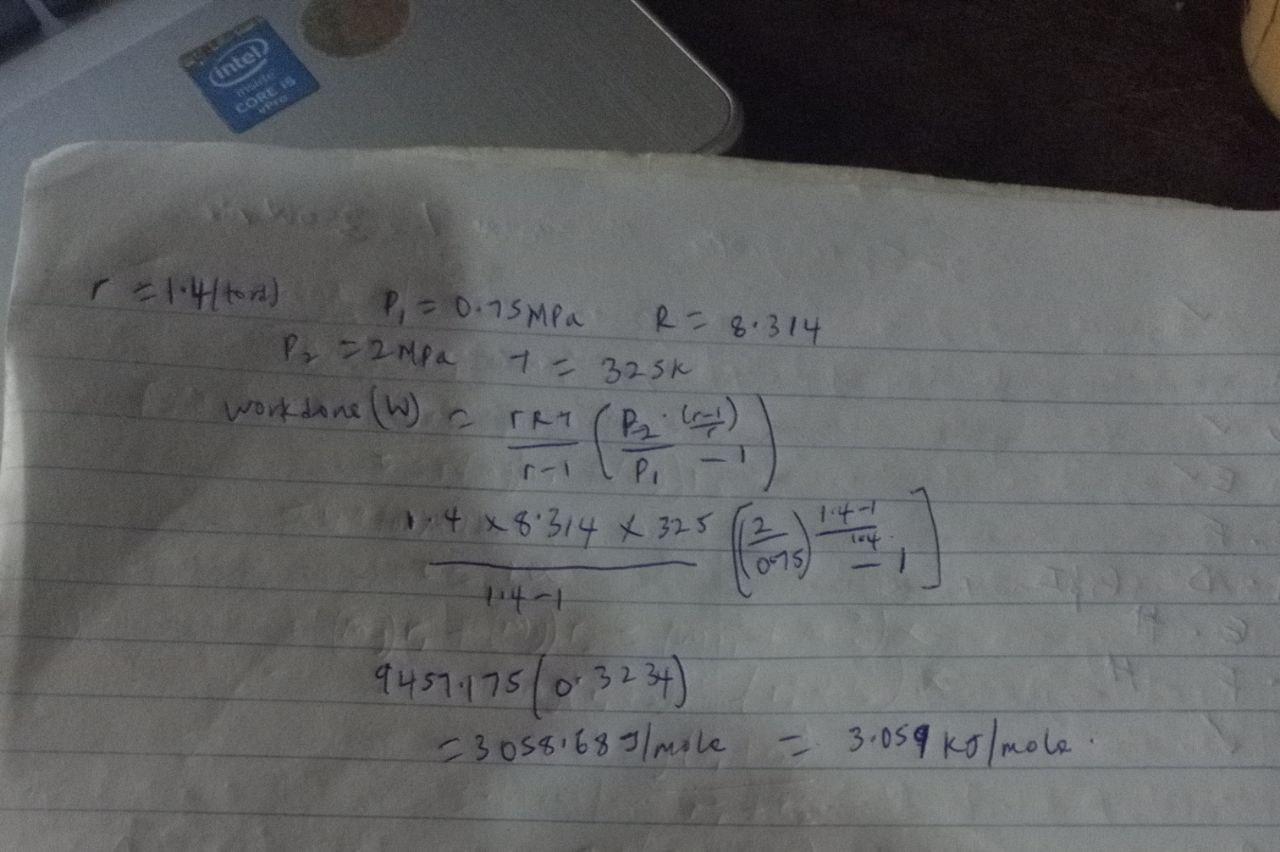 intel
inside
CORE i5
vPro
r = 1.4 P₁ = 0.75MPa R = 8.314
P₂ = 2MPa T = 325K
Workdone (W) = rRT/r-1 (P₂/P₁ ^(r-1/r) - 1)
1.4 × 8.314 × 325/1.4-1 [(2/0.75)^1.4-1/1.4 - 1]
9457.175(0.3234)
= 3058.68 J/mole = 3.059 KJ/mole.